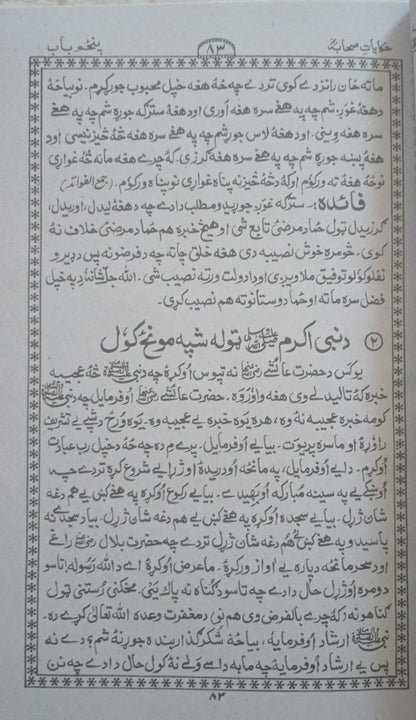 حکایاتِ صحابهؓ ۸۳ پنځم باب
ماته ځان رانزدے کوی تردے چه ځه هغه خپل محبوب جوړ کړم. نو بیا ځه
دهغهٔ غوږ شم چه په هغے سره هغه آوری اود هغهٔ سترګه جوړه شم چه په هغے
سره هغه وینی. اود هغهٔ لاس جوړ شم چه په هغے سره هغه څهٔ څیز نیسی اود
هغه پښه جوړه شم چه په هغے سره هغه ګرزی. که چرے هغه مانه څهٔ غواړی
نو ځه هغهٔ ته ورکوم او که دڅهٔ څیز نه پناه غواړی نو پناه ورکوم. (جمع الفوائد)
فائده:۔ سترګه غوږ جوړیدو مطلب دادے چه دهغهٔ لیدل، اوریدل،
ګرزیدل ټول ځما د مرضئ تابع شی او هیڅ خبره هم ځما د مرضئ خلاف نهٔ
کوی. څومره خوش نصیبه دی هغه خلق چاته چه د فرضونو نه پس د ډیرو
نفلو کولو توفیق ملاویږی او دا دولت ورته نصیب شی. الله جلّ شانهٗ دِ په خپل
فضل سره ماته او ځما دوستانو ته هم نصیب کړی.
۲ دنبی اکرم ﷺ ټوله شپه مونځ کول
یو کس د حضرت عائشےؓ نه تپوس اوکړو چه د نبی ﷺ څهٔ عجیبه
خبره که تا لیدلے وی هغه واوروه. حضرت عائشےؓ اوفرمایل چه د نبی ﷺ
کومه خبره عجیبه نهٔ وه، هره یوه خبره یے عجیبه وه. یوه ورځ د شپے یے تشریف
راوړو او ماسره پریوت. بیا یے اوفرمایل. پرے مِ ده چه ځه د خپل رب عبادت
اوکړم. دا یے اوفرمایل، په مانځه اودریدو او ژړا یے شروع کړه تردے چه
اوښکے یے په سینه مبارکه اوبهیدے. بیا یے رکوع اوکړه په هغے کښے یے هم دغه
شان ژړل. بیا یے سجده اوکړه په هغے کښے یے هم دغه شان ژړل. بیا د سجدے نه
پاسیدو په هغے کښے هم دغه شان ژړل تردے چه حضرت بلالؓ راغے
اود سحر مانځهٔ دپاره یے اواز ورکړو. ما عرض اوکړو اے دالله رسوله! تاسو
دومره اوژړل حال دادے چه تاسو د ګناه نه پاک یئ. مخکنی رستنی ټول
ګناهونه که چرے بالفرض وی هم نو د مغفرت وعده الله تعالیٰ کړے ده.
نبی ﷺ ارشاد اوفرمایه، بیا ځه شکر ګذار بنده جوړ نهٔ شم؟ دے نه
پس یے ارشاد اوفرمایو چه ما به داسے ولے نهٔ کول حال دادے چه نن
۸۳